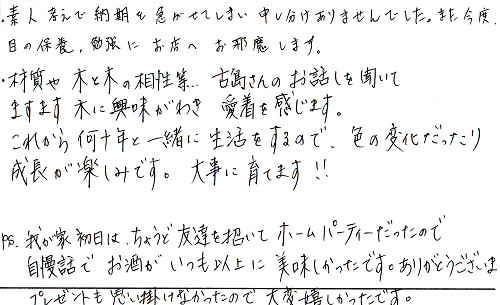 ・素人考えで納期を急がせてしまい申し分けありませんでした。また今度、
目の保養、勉強にお店へお邪魔します。
・材質や木と木の相性等… 古島さんのお話しを聞いて
ますます木に興味がわき 愛着を感じます。
これから何十年と一緒に生活をするので、色の変化だったり
成長が楽しみです。大事に育てます!!
PS. 我が家初日は、ちょうど友達を招いてホームパーティーだったので
自慢話でお酒がいつも以上に美味しかったです。ありがとうございま
プレゼントも思い掛けなかったので大変嬉しかったです。